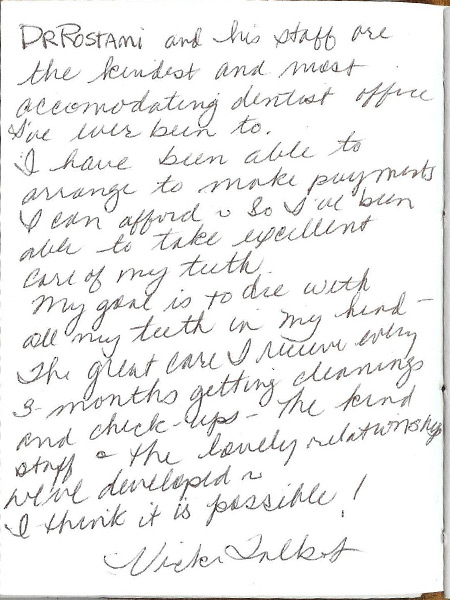 DR Rostami and his staff are
the kindest and most
accomodating dentist office
I've ever been to.
I have been able to
arrange to make payments
I can afford ~ So I've been
able to take excellent
care of my teeth.
My goal is to die with
all my teeth in my head -
The great care I receive every
3-months getting cleanings
and check-ups - The kind
staff ~ the lovely relationship
we've developed ~
I think it is possible!
Vicki Talbot